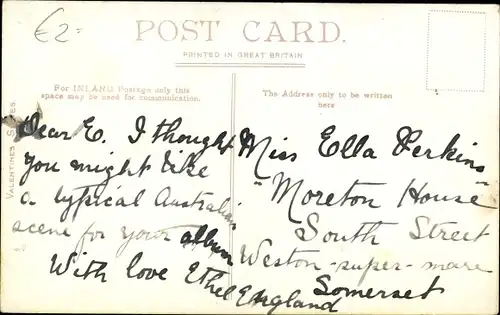 €2=
POST CARD.
PRINTED IN GREAT BRITAIN
For INLAND Postage only this
space may be used for communication.
The Address only to be written
here
VALENTINES SERIES.
Dear E. I thought
you might like
a typical Australian
scene for your album
With love Ethel
Miss Ella Perkins
"Moreton House"
South Street
Weston-super-mare
Somerset
England